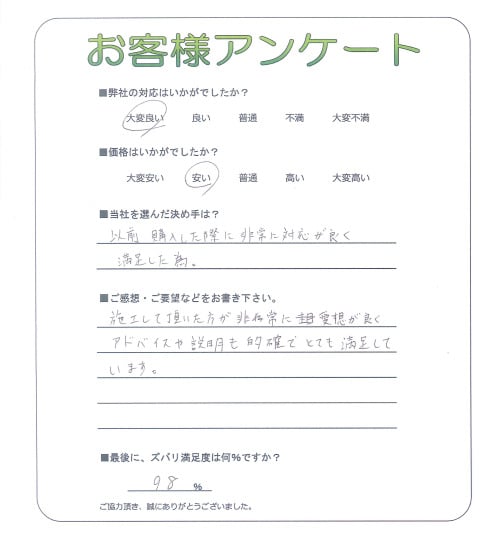 お客様アンケート
■弊社の対応はいかがでしたか？
大変良い 良い 普通 不満 大変不満
■価格はいかがでしたか？
大変安い 安い 普通 高い 大変高い
■当社を選んだ決め手は？
以前 購入した際に非常に対応が良く
満足した為。
■ご感想・ご要望などをお書き下さい。
施工して頂いた方が非常に愛想が良く
アドバイスや説明も的確でとても満足して
います。
■最後に、ズバリ満足度は何%ですか？
98 %
ご協力頂き、誠にありがとうございました。